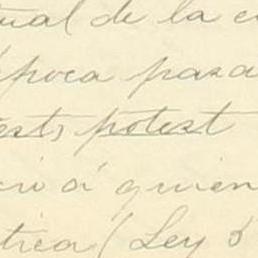 tual de la e
época pasa
ests potest
ció á quien
tica (Ley 5